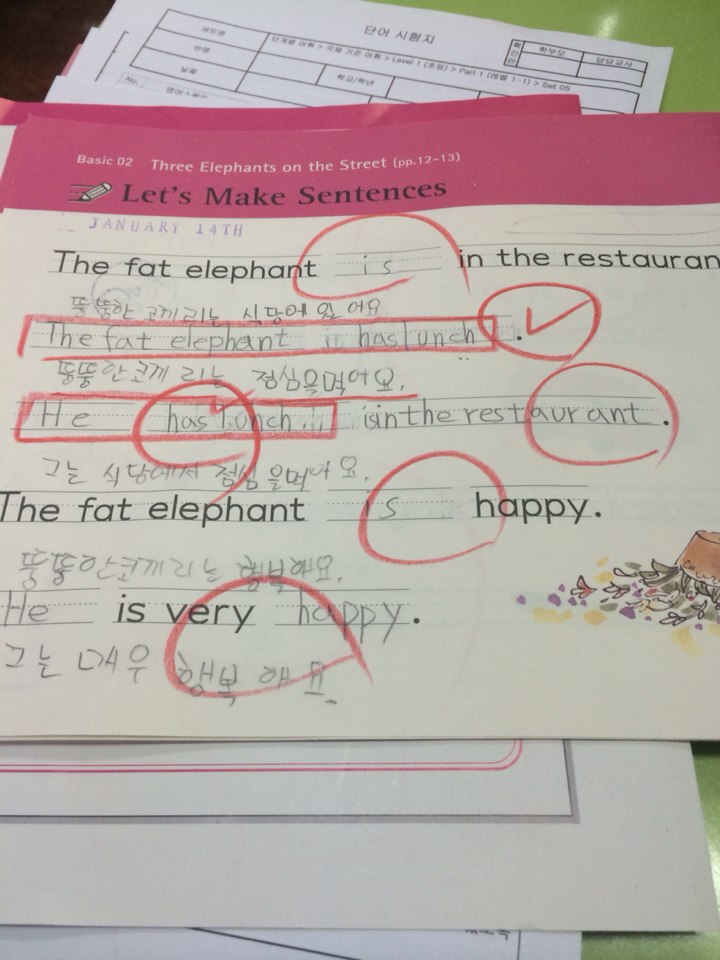 단어 시험지
세트명 단계별 어휘 > 국제 기준 어휘 > Level 1 (초등) > Part 1 (레벨 1-1) > Set 05
확인란 학부모 담당교사
반명
날짜 학교/학년
No.
Basic 02 Three Elephants on the Street (pp.12-13)
Let's Make Sentences
JANUARY 14TH
The fat elephant is in the restauran
뚱뚱한 코끼리는 식당에 있어요
The fat elephant has lunch.
뚱뚱한 코끼리는 점심을 먹어요.
He has lunch is in the restaurant.
그는 식당에서 점심을 먹어요.
The fat elephant is happy.
뚱뚱한 코끼리는 행복해요.
He is very happy.
그는 매우 행복해요.